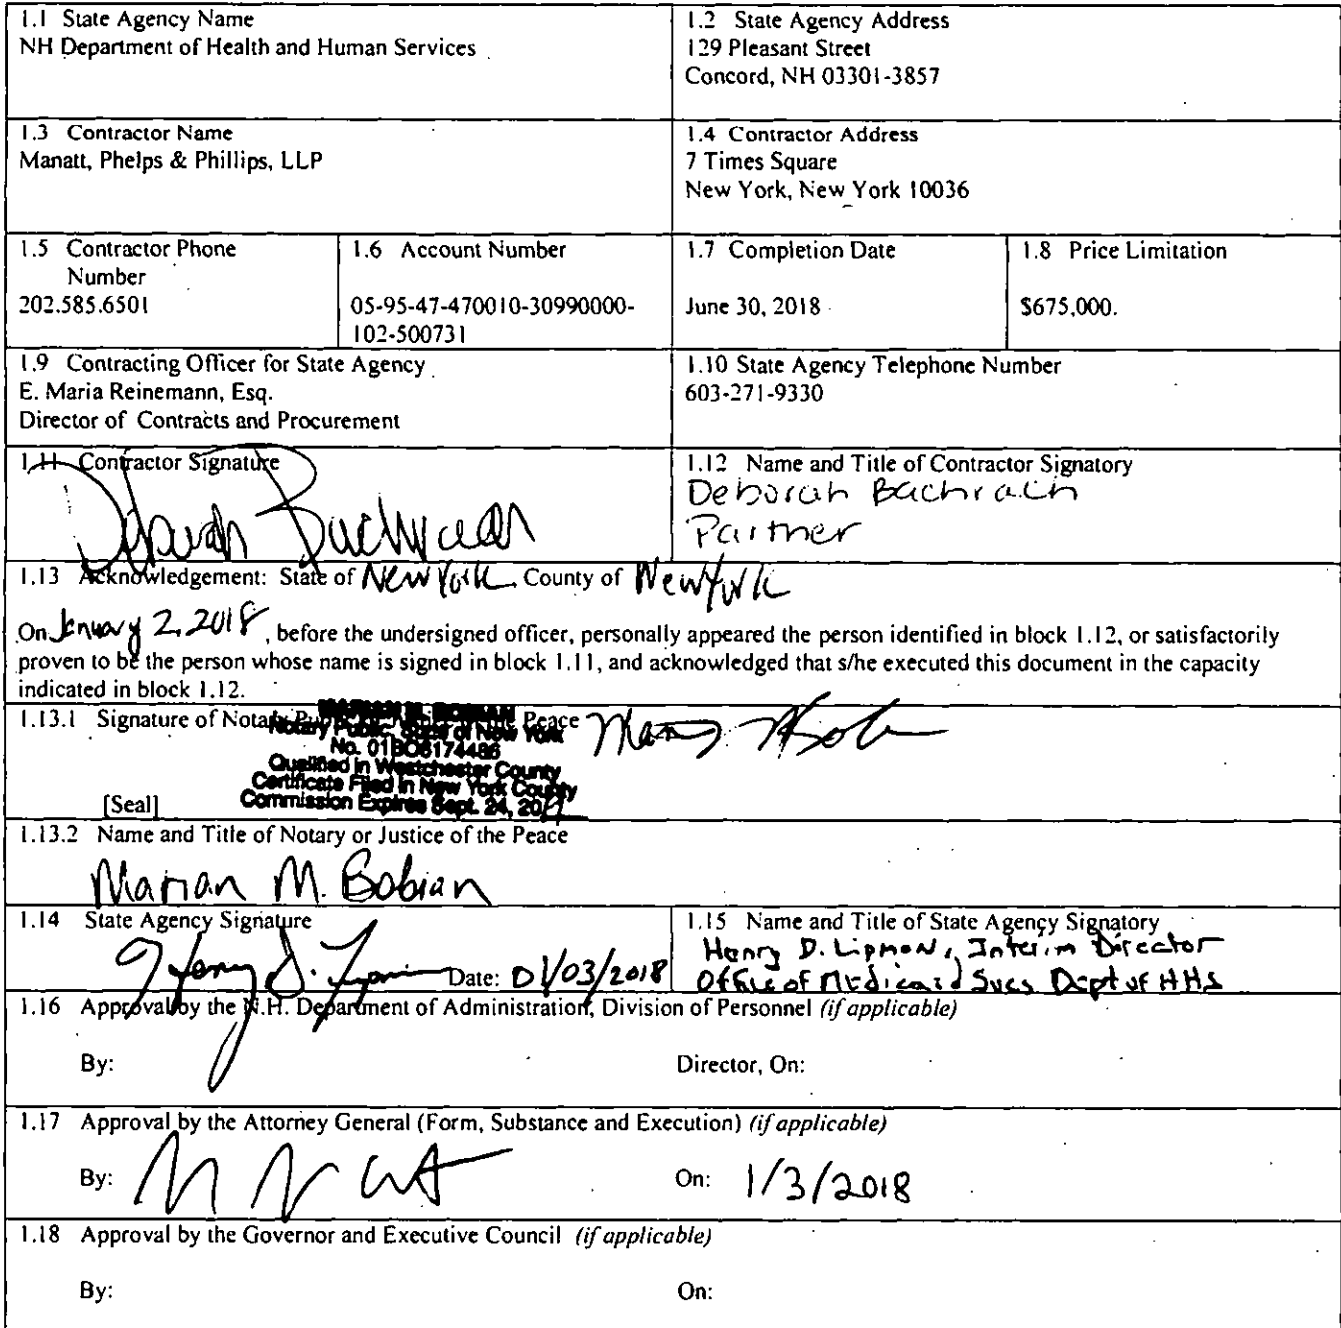 1.1 State Agency Name
NH Department of Health and Human Services
1.2 State Agency Address
129 Pleasant Street
Concord, NH 03301-3857
1.3 Contractor Name
Manatt, Phelps & Phillips, LLP
1.4 Contractor Address
7 Times Square
New York, New York 10036
1.5 Contractor Phone
Number
202.585.6501
1.6 Account Number
05-95-47-470010-30990000-
102-500731
1.7 Completion Date
June 30, 2018
1.8 Price Limitation
$675,000.
1.9 Contracting Officer for State Agency
E. Maria Reinemann, Esq.
Director of Contracts and Procurement
1.10 State Agency Telephone Number
603-271-9330
1.11 Contractor Signature
Deborah Bachrach
1.12 Name and Title of Contractor Signatory
Deborah Bachrach
Partner
1.13 Acknowledgement: State of New York, County of New York
On January 2, 2018, before the undersigned officer, personally appeared the person identified in block 1.12, or satisfactorily
proven to be the person whose name is signed in block 1.11, and acknowledged that s/he executed this document in the capacity
indicated in block 1.12.
1.13.1 Signature of Notary Public or Justice of the Peace
Notary Public, State of New York
No. 01BO6174486
Qualified in Westchester County
Certificate Filed in New York County
Commission Expires Sept. 24, 20
[Seal]
1.13.2 Name and Title of Notary or Justice of the Peace
Marian M. Bobian
1.14 State Agency Signature
Date: 01/03/2018
1.15 Name and Title of State Agency Signatory
Henry D. Lipman, Interim Director
Office of Medicaid Svcs Dept of HHS
1.16 Approval by the N.H. Department of Administration, Division of Personnel (if applicable)
By:
Director, On:
1.17 Approval by the Attorney General (Form, Substance and Execution) (if applicable)
By:
On: 1/3/2018
1.18 Approval by the Governor and Executive Council (if applicable)
By:
On: